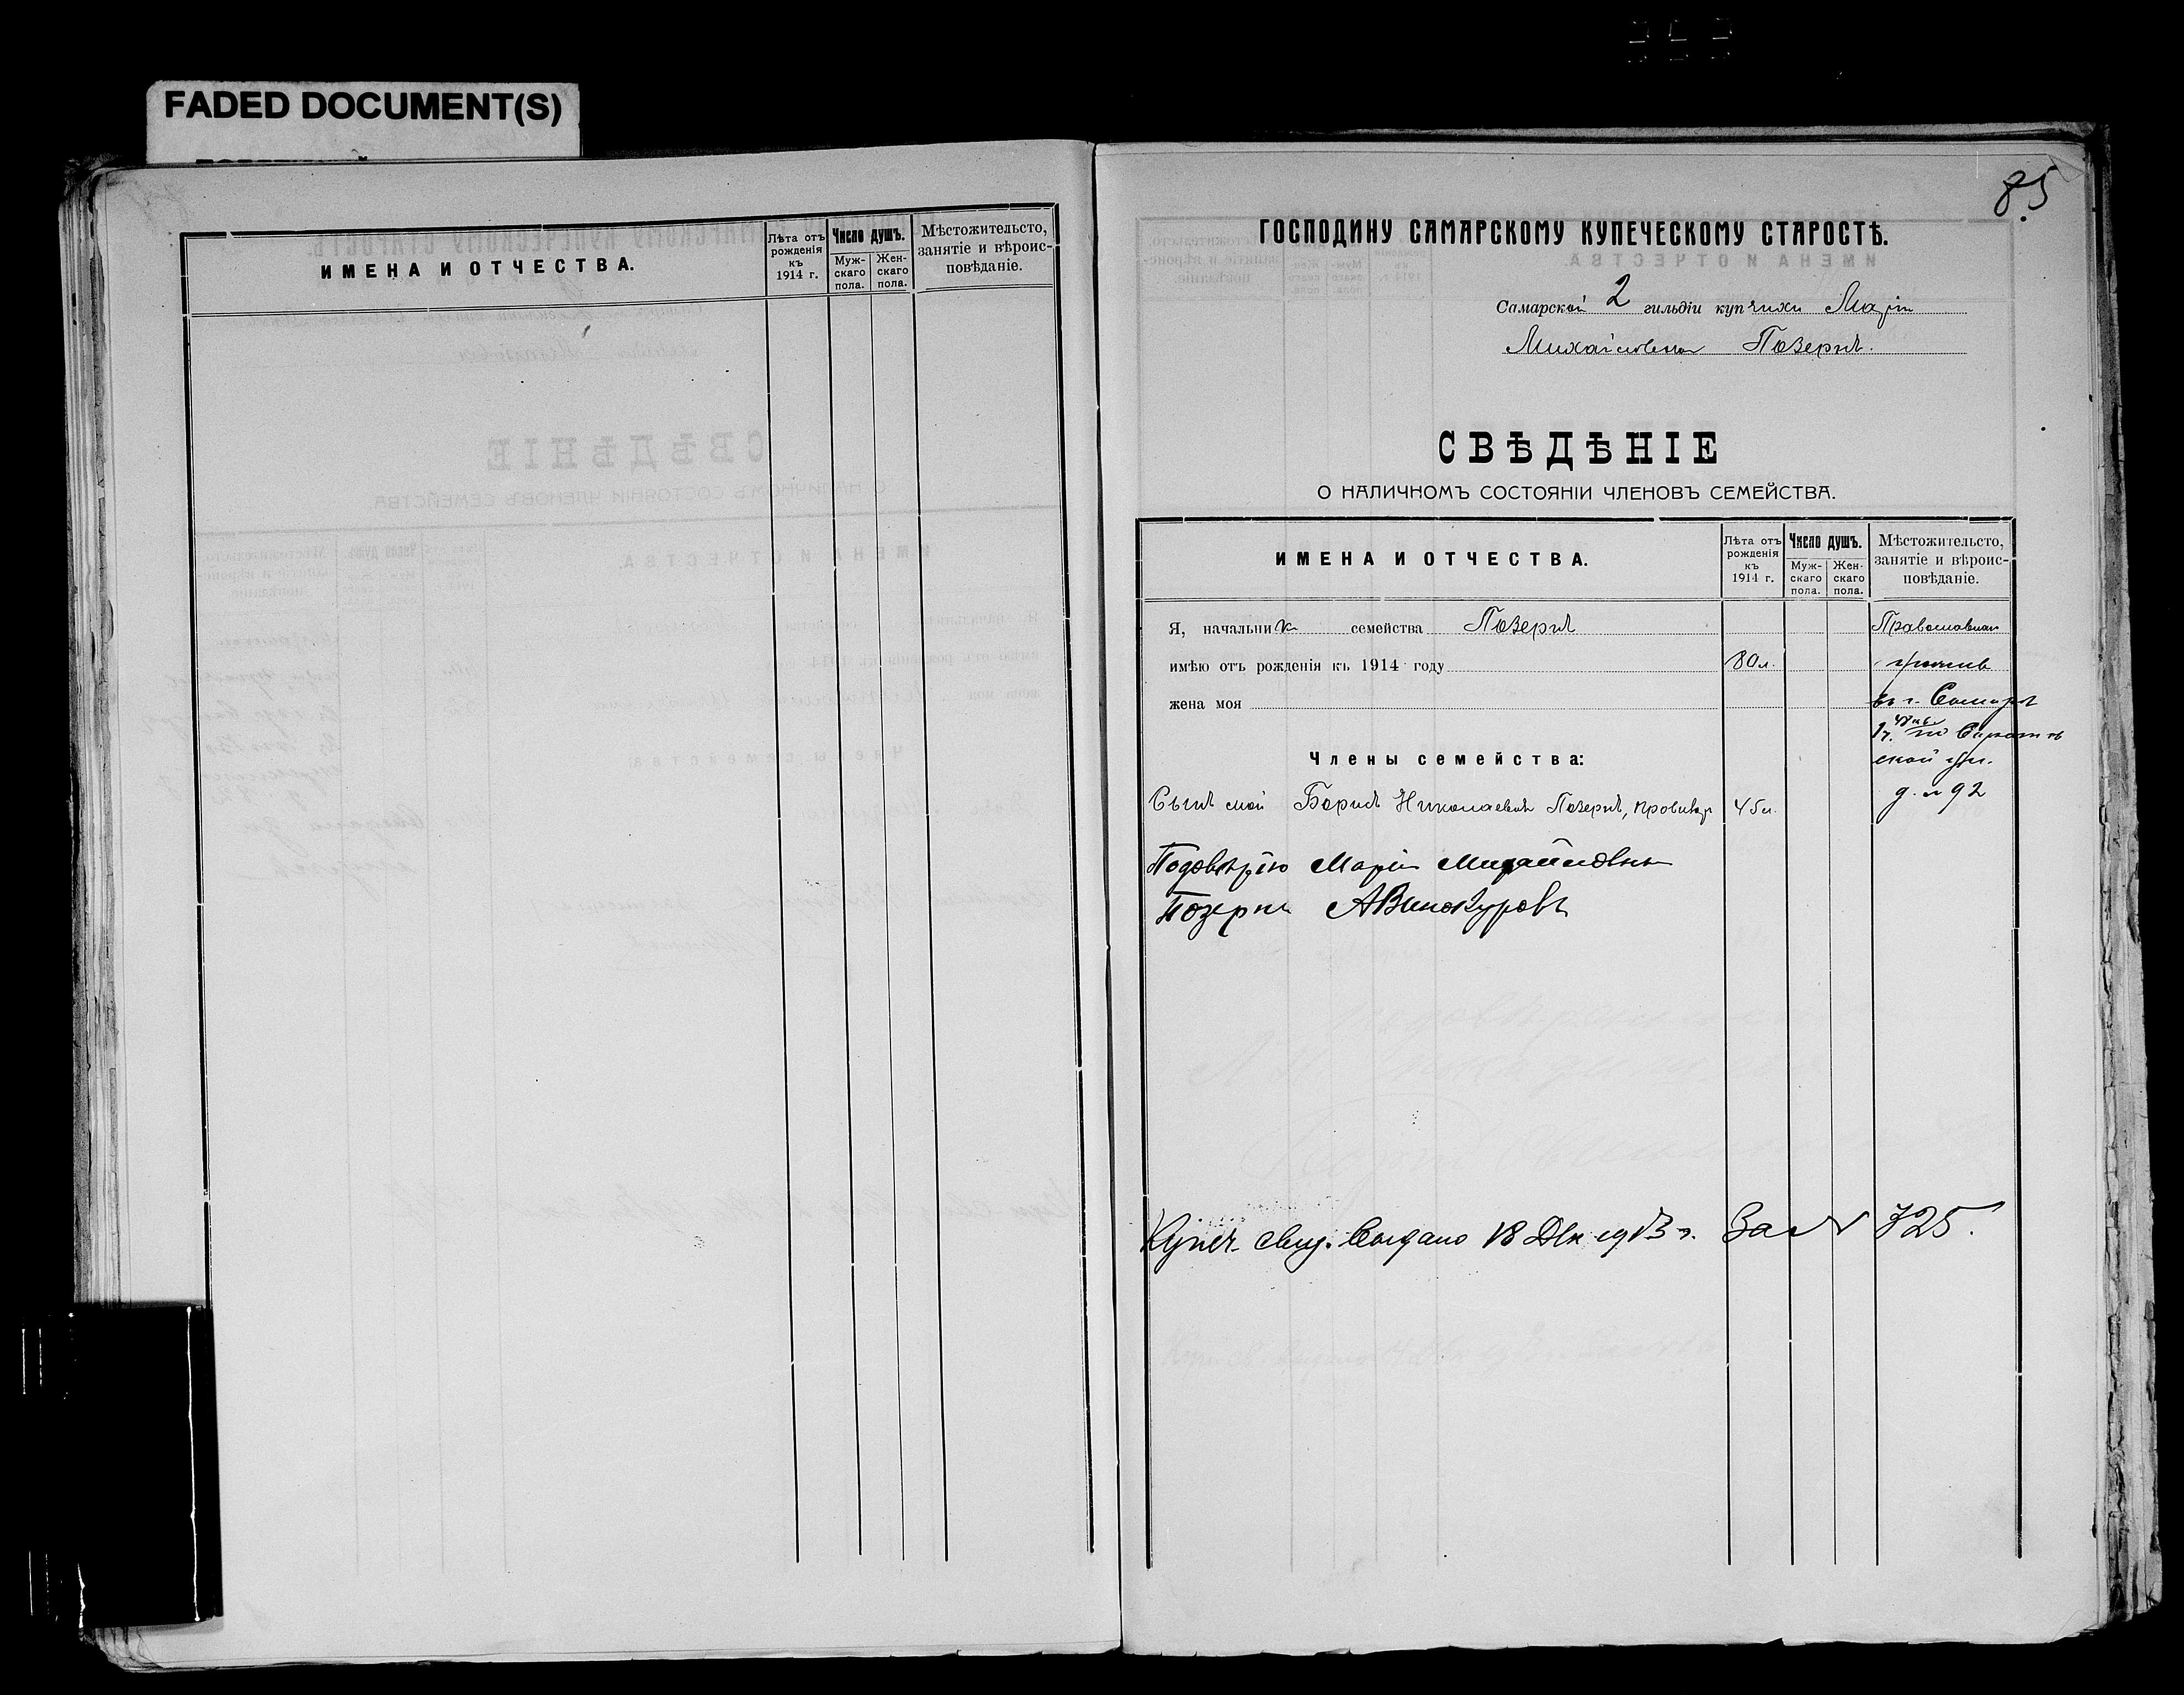 FADED DOCUMENT(S)
ИМЕНА И ОТЧЕСТВА.
Лѣта отъ рожденія къ 1914 г.
Число душъ.
Муж-скаго пола.
Жен-скаго пола.
Мѣстожительсто, занятіе и вѣроис-повѣданіе.
85
ГОСПОДИНУ САМАРСКОМУ КУПЕЧЕСКОМУ СТАРОСТѢ.
Самарской 2 гильдіи купчихи Маріи
Михайловны Позернъ.
СВѢДѢНІЕ
О НАЛИЧНОМЪ СОСТОЯНІИ ЧЛЕНОВЪ СЕМЕЙСТВА.
ИМЕНА И ОТЧЕСТВА.
Лѣта отъ рожденія къ 1914 г.
Число душъ.
Муж-скаго пола.
Жен-скаго пола.
Мѣстожительсто, занятіе и вѣроис-повѣданіе.
Я, начальник семейства Позернъ Православная
имѣю отъ рожденія къ 1914 году 80 л.
жена моя въ г. Самарѣ
по Саратов
Члены семейства: ской ул.
Сынъ мой Борисъ Николаевичъ Позернъ, провизор 45 л. д. № 92
По довѣрію Маріи Михайловны
Позернъ А Винокуровъ
Купеч. свид. выдано 18 Дек 1913 г. За № 725.